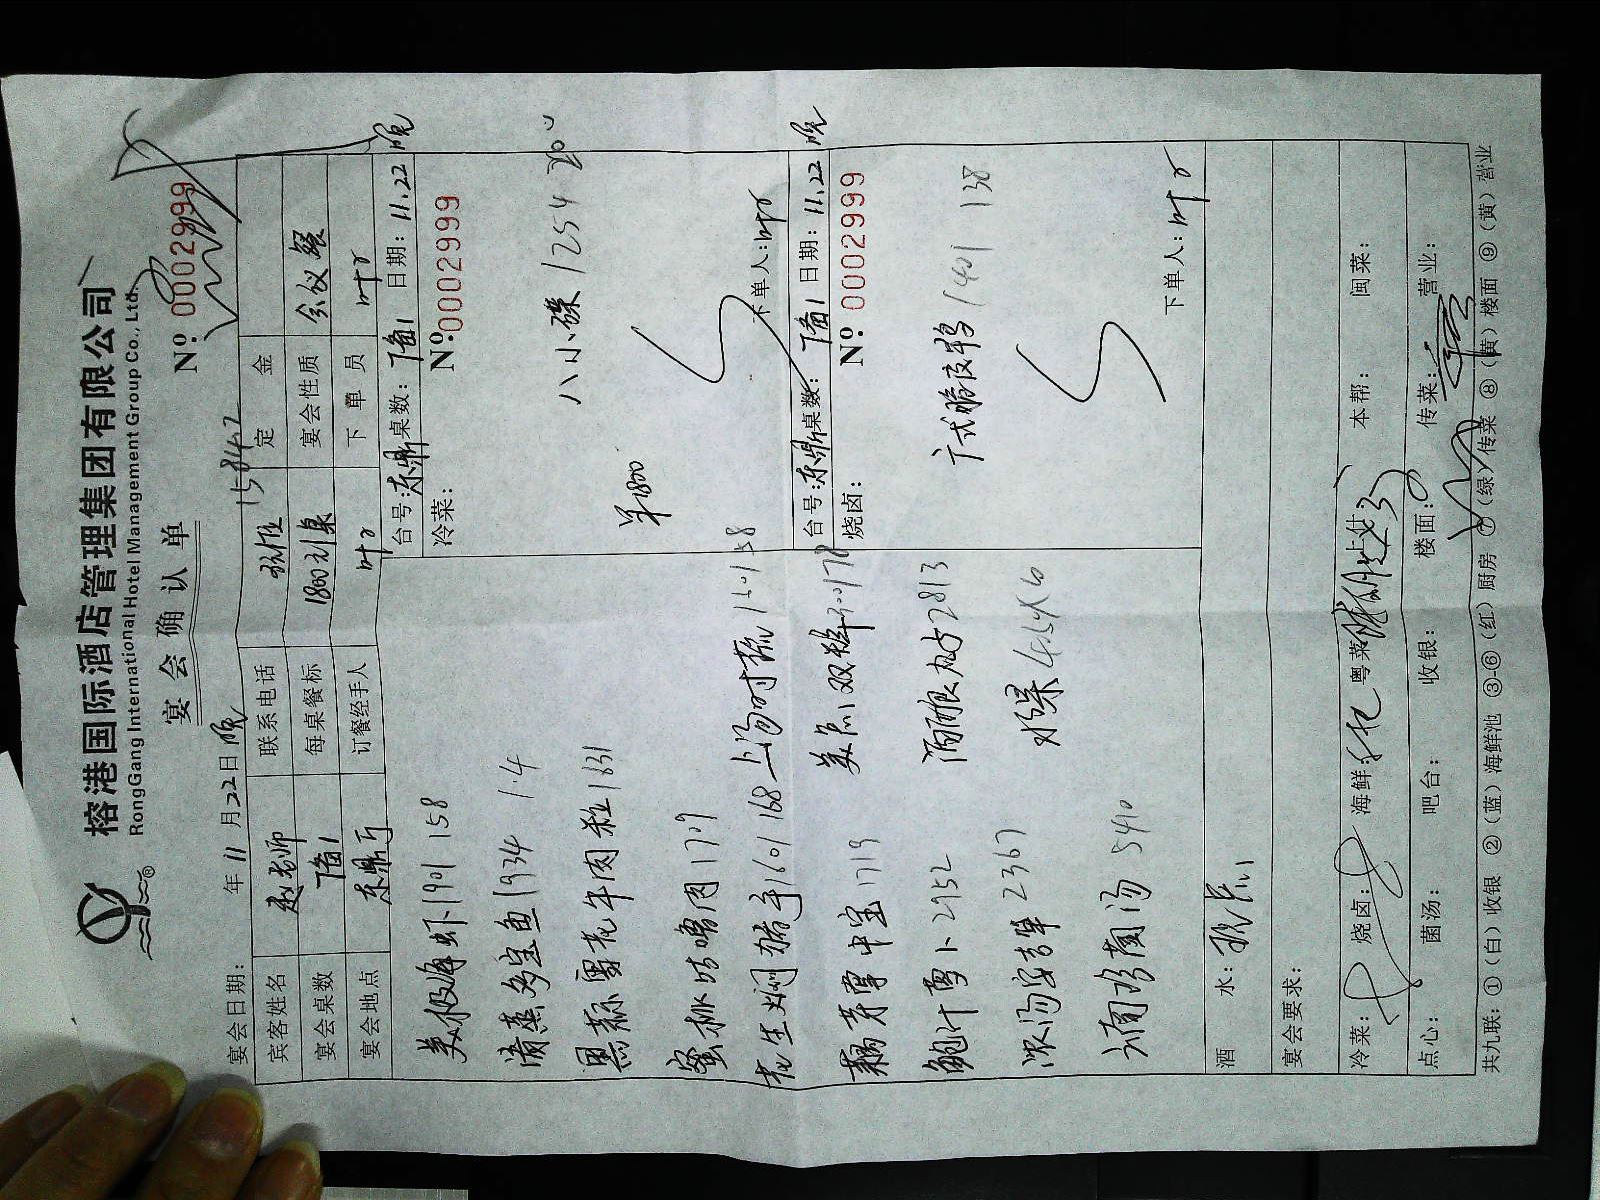 榕港国际酒店管理集团有限公司
RongGang International Hotel Management Group Co., Ltd.
宴会确认单
№: 0002999
宴会日期: 年 11 月 22 日 晚
宾客姓名 赵老师 联系电话 定金
宴会桌数 下备1 每桌餐标 1800元/桌 宴会性质 会议餐
宴会地点 东鼎厅 订餐经手人 下单员
台号: 东鼎 桌数: 下备1 日期: 11.22 晚
冷菜: №: 0002999
八小碟 1254 200
1800
下单人:
台号: 东鼎 桌数: 下备1 日期: 11.22 晚
烧卤: №: 0002999
广式脆皮鸭 1401 138
下单人:
美极海虾 1901 158
清蒸多宝鱼 1934
黑蒜雪花牛肉粒 1831
蜜桃咕噜肉 1709
花生焖猪手 1601 168
上汤时蔬 1501 58
1719
美点双辉
鲍汁萝卜 2952
2813
浓汤 2367
水果
菌汤 5410
酒水:
宴会要求:
冷菜: 烧卤: 海鲜: 粤菜: 本帮: 闽菜:
点心: 菌汤: 吧台: 收银: 楼面: 传菜: 营业:
共九联: ①(白)收银 ②(蓝)海鲜池 ③-⑥(红)厨房 ⑦(绿)传菜 ⑧(黄)楼面 ⑨(黄)营业